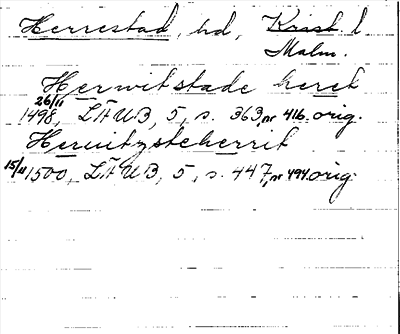 Herrestad, hd, Krist. l
Malm.
Herwitstade heret
26/11
1498, LÄUB, 5, s. 363, nr 416. orig.
Heruitzsteherrit
15/11 1500, LÄUB, 5, s. 447, nr 494. orig.